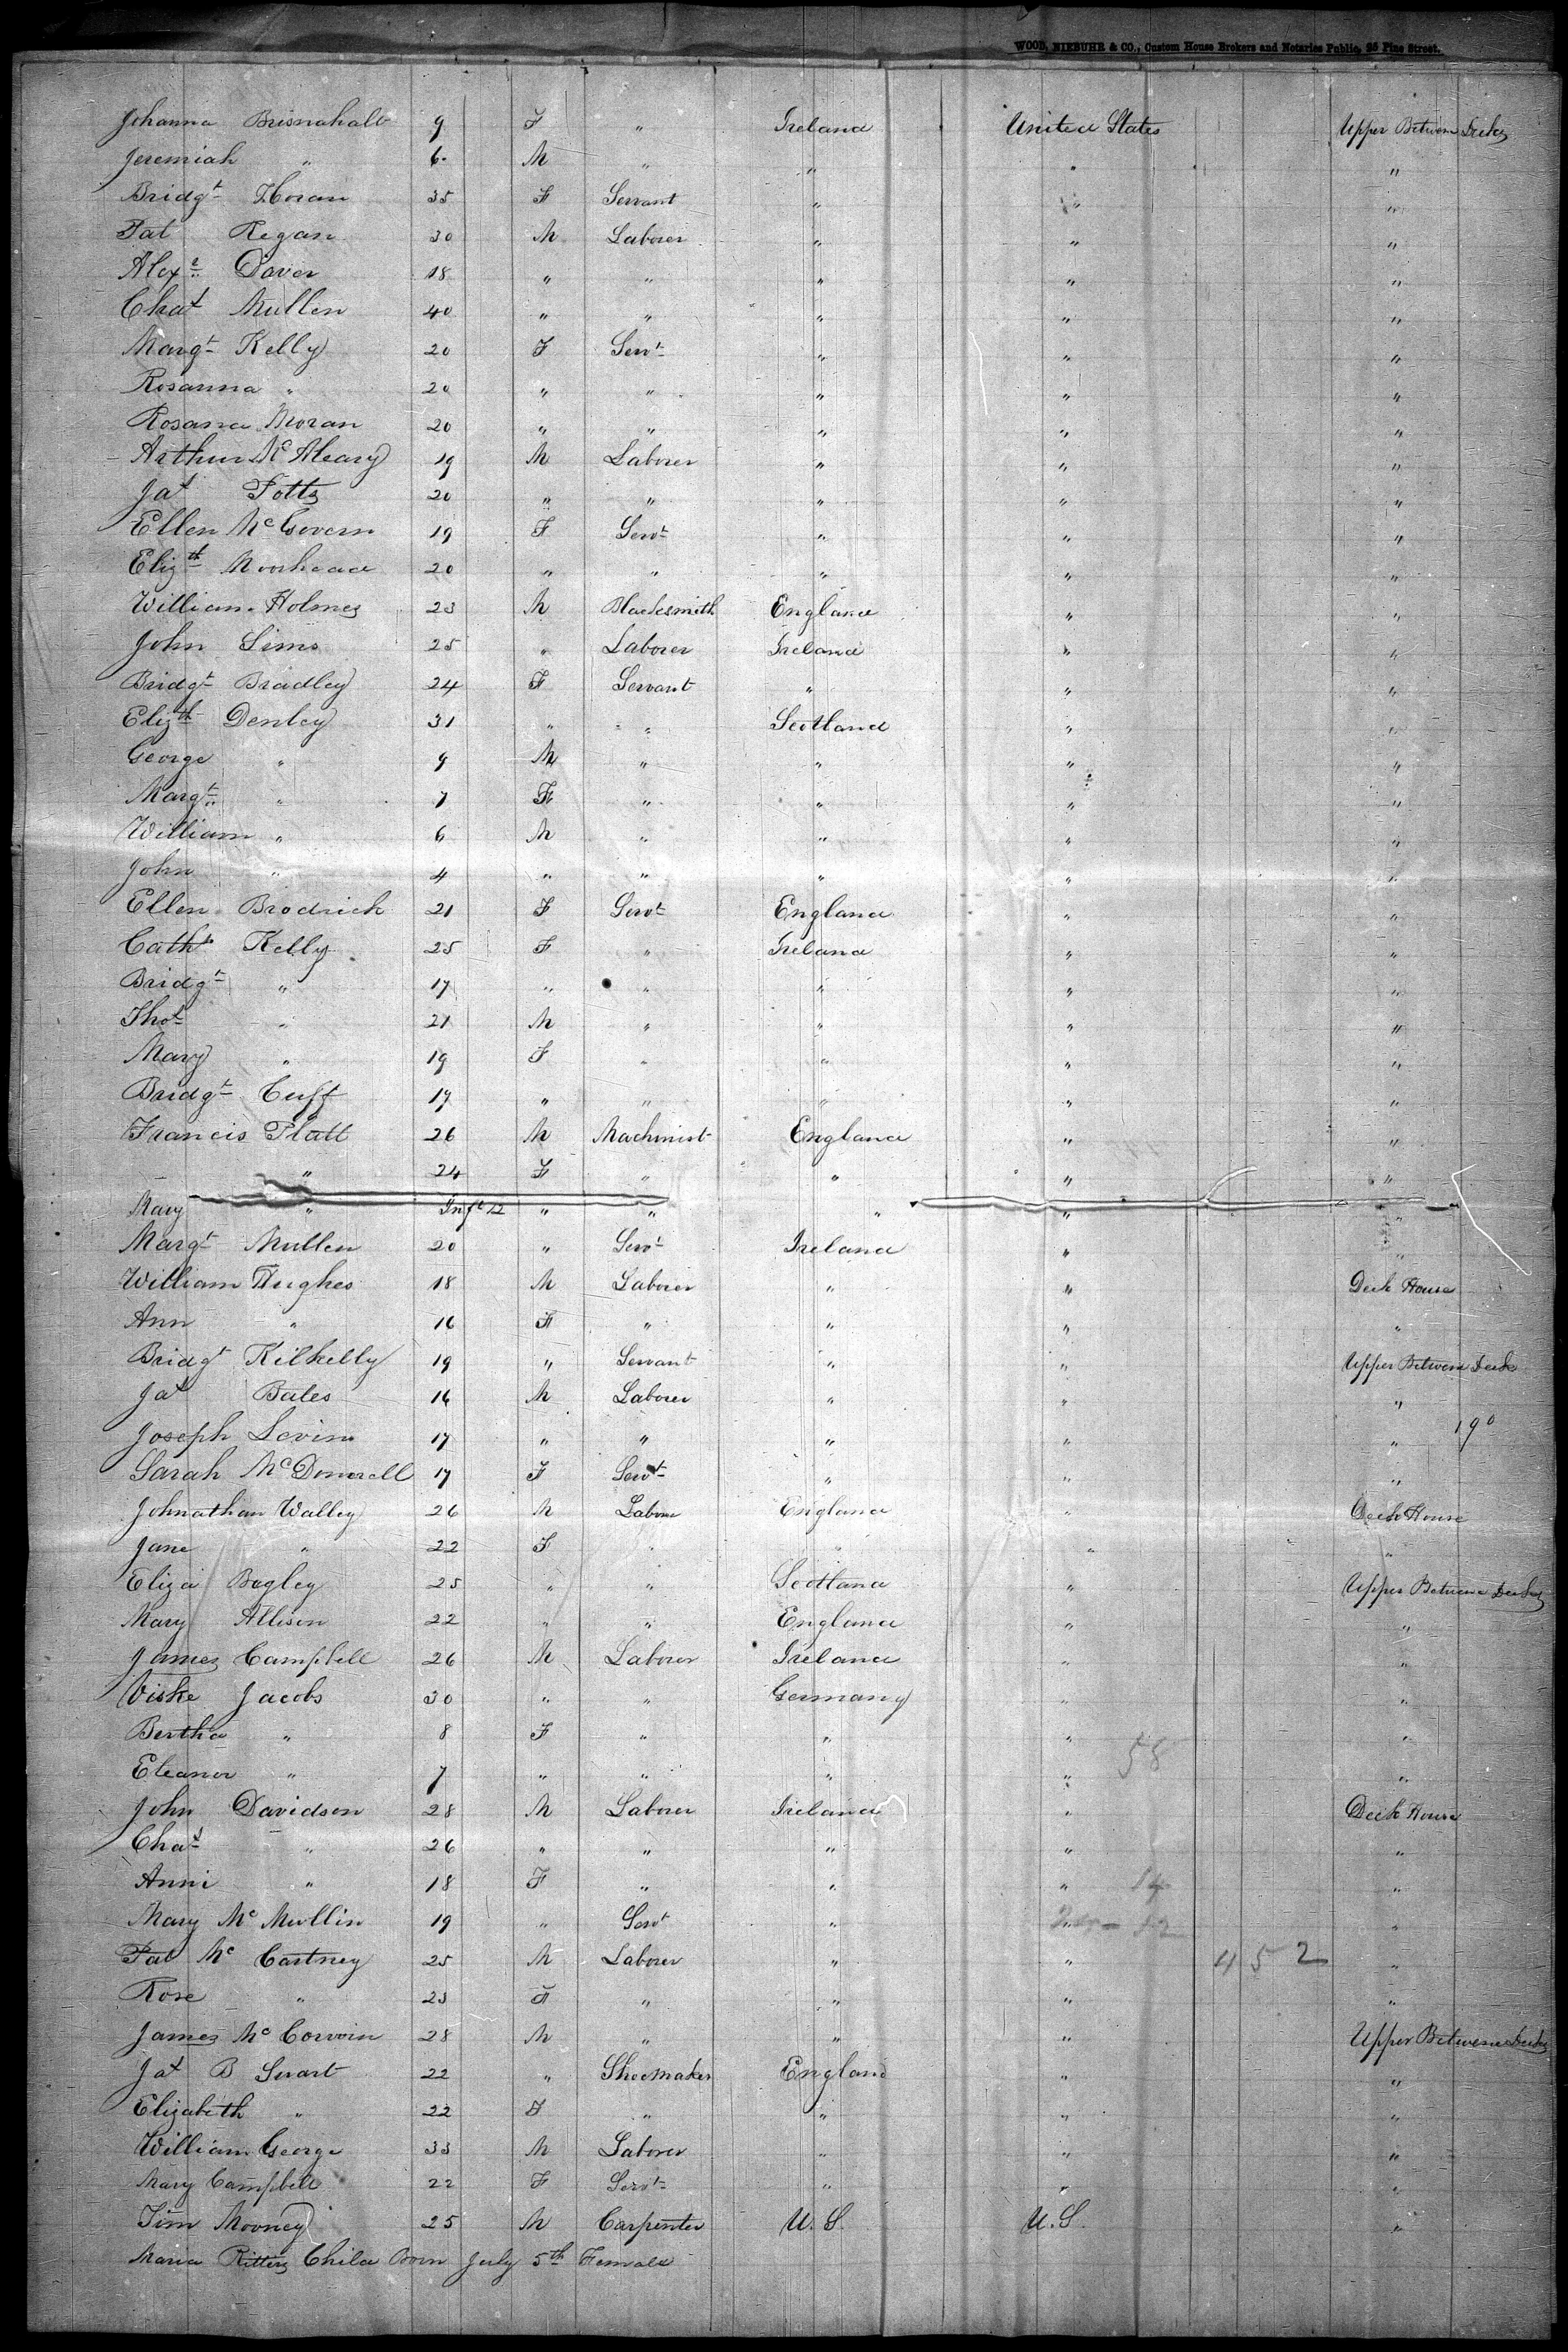 WOOD, NIEBUHR & CO., Custom House Brokers and Notaries Public, 25 Pine Street.
Johanna Brisnahalt 9 F " Ireland United States Upper Between Decks
Jeremiah " 6 M " " " "
Bridgt Horan 35 F Servant " " "
Pat Regan 30 M Laborer " " "
Alexr Daver 18 " " " " "
Chas Mullen 40 " " " " "
Margt Kelly 20 F Servt " " "
Rosanna " 20 " " " " "
Rosana Moran 20 " " " " "
Arthur McAleary 19 M Laborer " " "
Jas Potts 20 " " " " "
Ellen McGovern 19 F Servt " " "
Elizth Moorhead 20 " " " " "
William Holmes 23 M Blacksmith England " "
John Sims 25 " Laborer Ireland " "
Bridgt Bradley 24 F Servant " " "
Elizth Denley 31 " " Scotland " "
George " 9 M " " " "
Margt " 7 F " " " "
William " 6 M " " " "
John " 4 " " " " "
Ellen Brodrick 21 F Servt England " "
Cath Kelly 25 F " Ireland " "
Bridgt " 17 " " " " "
Thos " 21 M " " " "
Mary " 19 F " " " "
Bridgt Cuff 17 " " " " "
Francis Platt 26 M Machinist England " "
" 24 F " " " "
Mary " Inft 12 " " " " "
Margt Mullen 20 " Servt Ireland " "
William Hughes 18 M Laborer " " Deck House
Ann " 16 F " " " "
Bridgt Kilkelly 19 " Servant " " Upper Between Decks
Jas Bales 16 M Laborer " " "
Joseph Levins 17 " " " " " 190
Sarah McDonnell 17 F Servt " " "
Johnathan Walley 26 M Laborer England " Deck House
Jane " 22 F " " " "
Eliza Bagley 25 " " Scotland " Upper Between Decks
Mary Allison 22 " " England " "
James Campbell 26 M Laborer Ireland " "
Viske Jacobs 30 " " Germany " "
Bertha " 8 F " " " "
58
Eleanor " 7 " " " " "
John Davidson 28 M Laborer Ireland " Deck House
Chas " 26 " " " " "
Anni " 18 F " " " 14 "
Mary McMullin 19 " Servt " " 12 "
Pat McCartney 25 M Laborer " " 452 "
Rose " 23 F " " " "
James McCorvoin 28 M " " " Upper Between Decks
Jas B Swart 22 " Shoemaker England " "
Elizabeth " 22 F " " " "
William George 33 M Laborer " " "
Mary Campbell 22 F Servt " " "
Tim Mooney 25 M Carpenter U.S. U.S. "
Maria Ritters Child Born July 5th Female